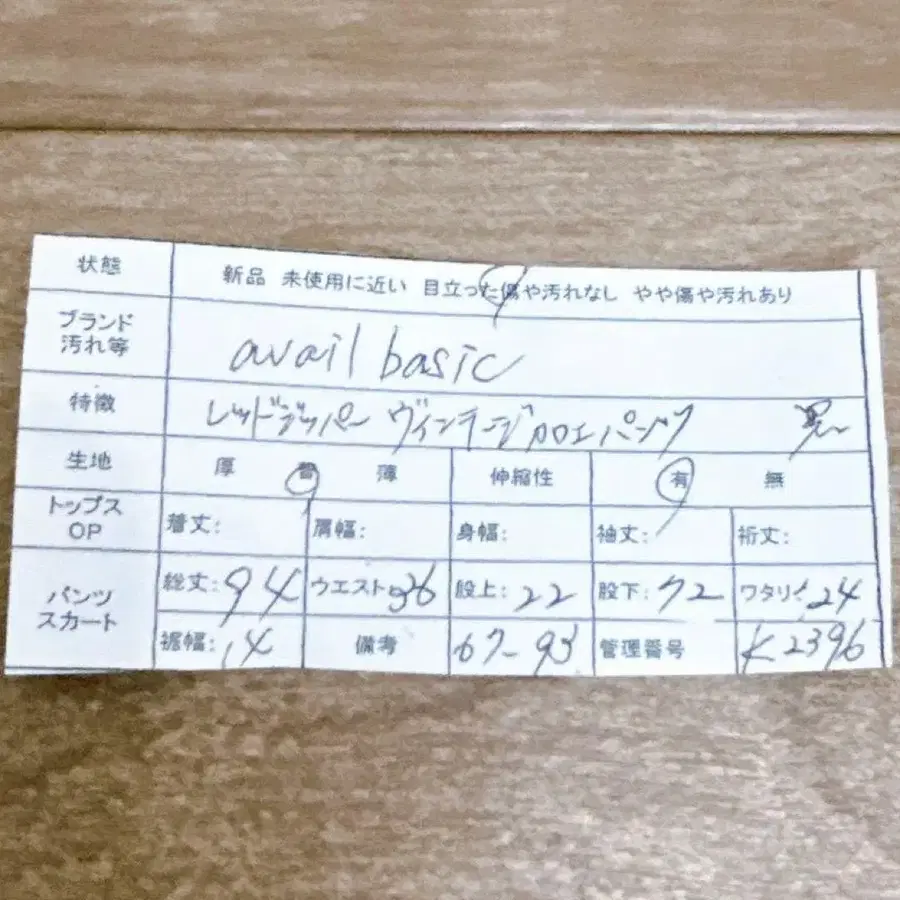 状態 新品 未使用に近い 目立った傷や汚れなし やや傷や汚れあり
ブランド
汚れ等 avail basic
特徴 レッドジッパー ヴィンテージ加工パンツ 黒
生地 厚 普 薄 伸縮性 有 無
トップス
OP 着丈: 肩幅: 身幅: 袖丈: 裄丈:
パンツ
スカート 総丈: 94 ウエスト: 36 股上: 22 股下: 72 ワタリ: 24
裾幅: 14 備考 67-93 管理番号 K2396